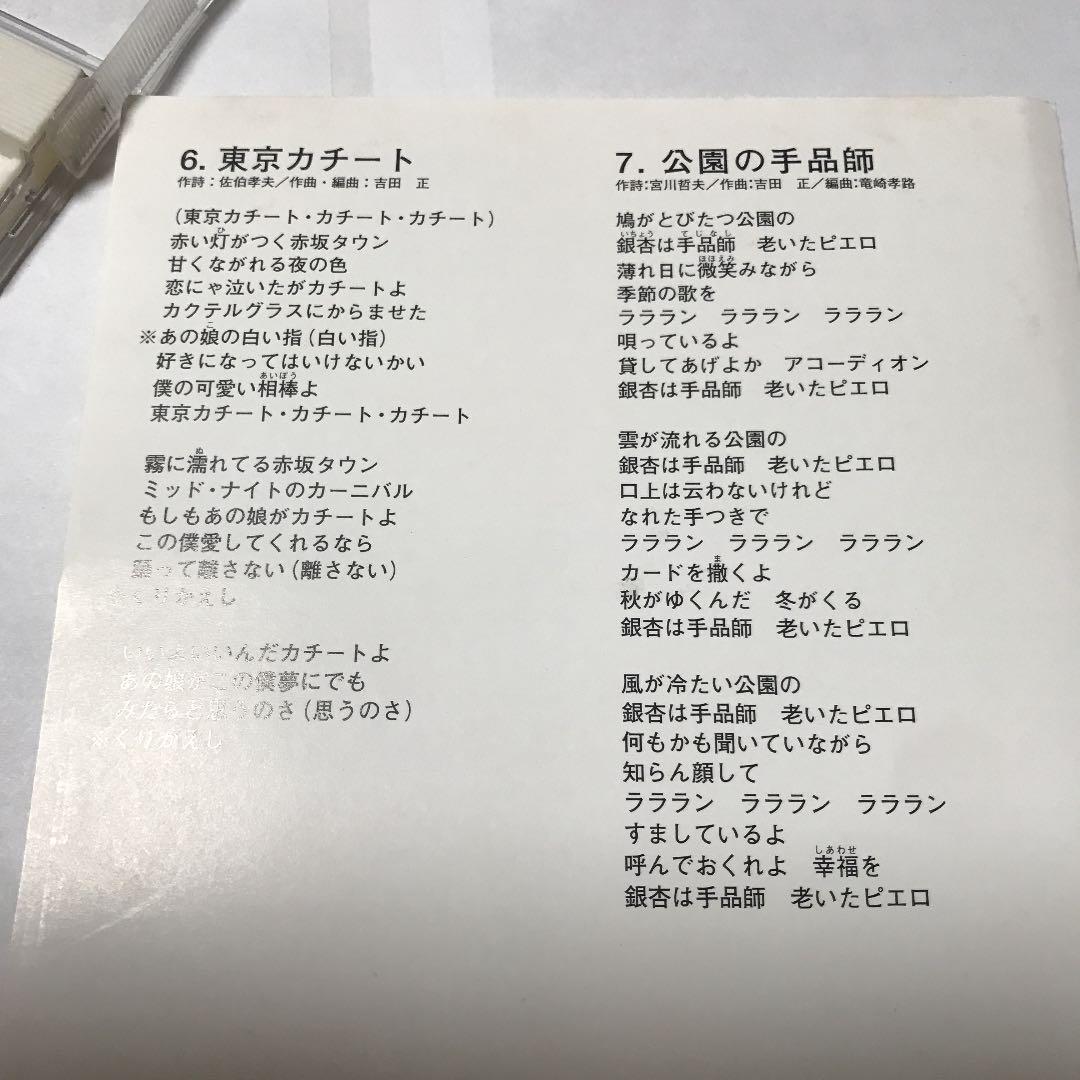 6. 東京カチート
作詩：佐伯孝夫／作曲・編曲：吉田　正
（東京カチート・カチート・カチート）
赤い灯がつく赤坂タウン
甘くながれる夜の色
恋にゃ泣いたがカチートよ
カクテルグラスにからませた
※あの娘の白い指（白い指）
好きになってはいけないかい
僕の可愛い相棒よ
東京カチート・カチート・カチート
霧に濡れてる赤坂タウン
ミッド・ナイトのカーニバル
もしもあの娘がカチートよ
この僕愛してくれるなら
踊って離さない（離さない）
※くりかえし
いいよいいんだカチートよ
あの娘がこの僕夢にでも
みたらと思うのさ（思うのさ）
※くりかえし
7. 公園の手品師
作詩：宮川哲夫／作曲：吉田　正／編曲：竜崎孝路
鳩がとびたつ公園の
銀杏は手品師　老いたピエロ
薄れ日に微笑みながら
季節の歌を
ラララン　ラララン　ラララン
唄っているよ
貸してあげよか　アコーディオン
銀杏は手品師　老いたピエロ
雲が流れる公園の
銀杏は手品師　老いたピエロ
口上は云わないけれど
なれた手つきで
ラララン　ラララン　ラララン
カードを撒くよ
秋がゆくんだ　冬がくる
銀杏は手品師　老いたピエロ
風が冷たい公園の
銀杏は手品師　老いたピエロ
何もかも聞いていながら
知らん顔して
ラララン　ラララン　ラララン
すましているよ
呼んでおくれよ　幸福を
銀杏は手品師　老いたピエロ